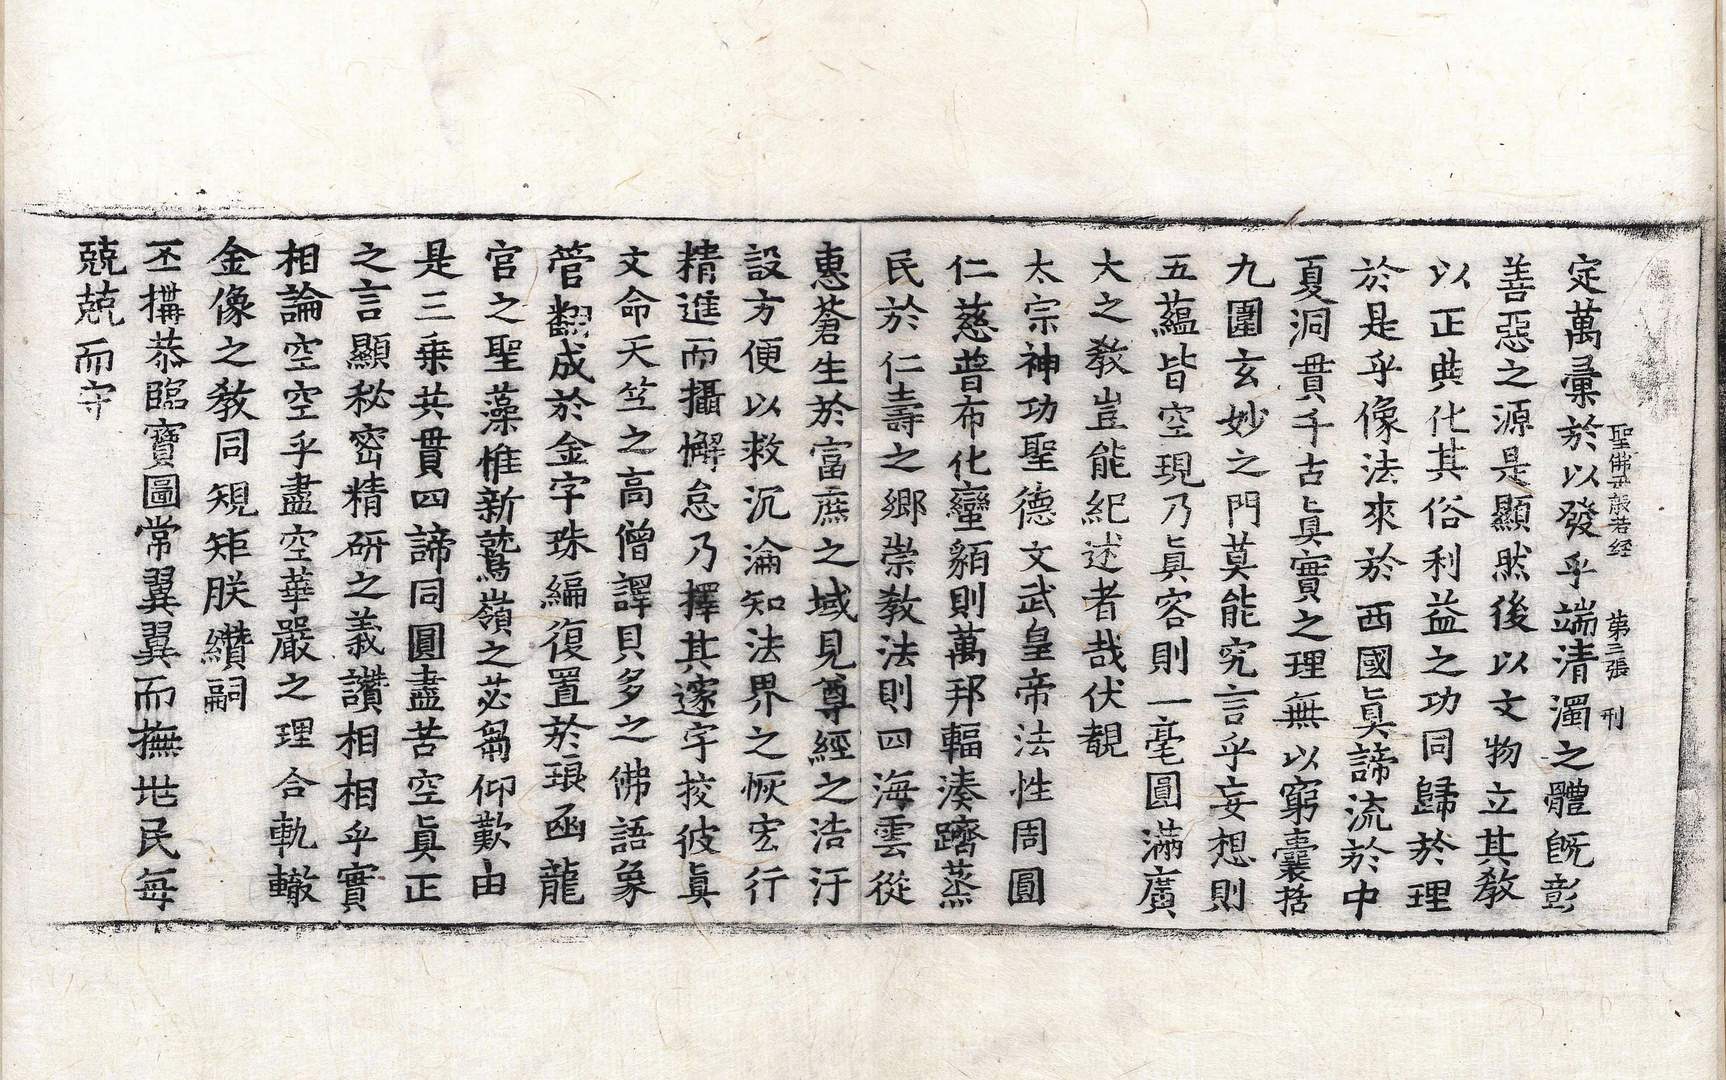 聖佛母般若経 第三張 刊
定萬彙於以發乎端清濁之體旣彰
善惡之源是顯然後以文物立其教
以正典化其俗利益之功同歸於理
於是乎像法來於西國眞諦流於中
夏洞貫千古眞實之理無以窮囊括
九圍玄妙之門莫能究言乎妄想則
五蘊皆空現乃眞容則一毫圓滿廣
大之教豈能紀述者哉伏覩
太宗神功聖德文武皇帝法性周圓
仁慈普布化蠻貊則萬邦輻湊躋蒸
民於仁壽之鄉崇教法則四海雲從
惠蒼生於富庶之域見尊經之浩汗
設方便以救沉淪知法界之恢宏行
精進而攝懈怠乃擇其邃宇挍彼眞
文命天竺之高僧譯貝多之佛語象
管翻成於金字珠編復置於琅函龍
宮之聖藻惟新鷲嶺之苾芻仰歎由
是三乘共貫四諦同圓盡苦空眞正
之言顯秘密精研之義讚相相乎實
相論空空乎盡空華嚴之理合軌轍
金像之教同規矩朕纘嗣
丕搆恭臨寶圖常翼翼而撫世民每
兢兢而守